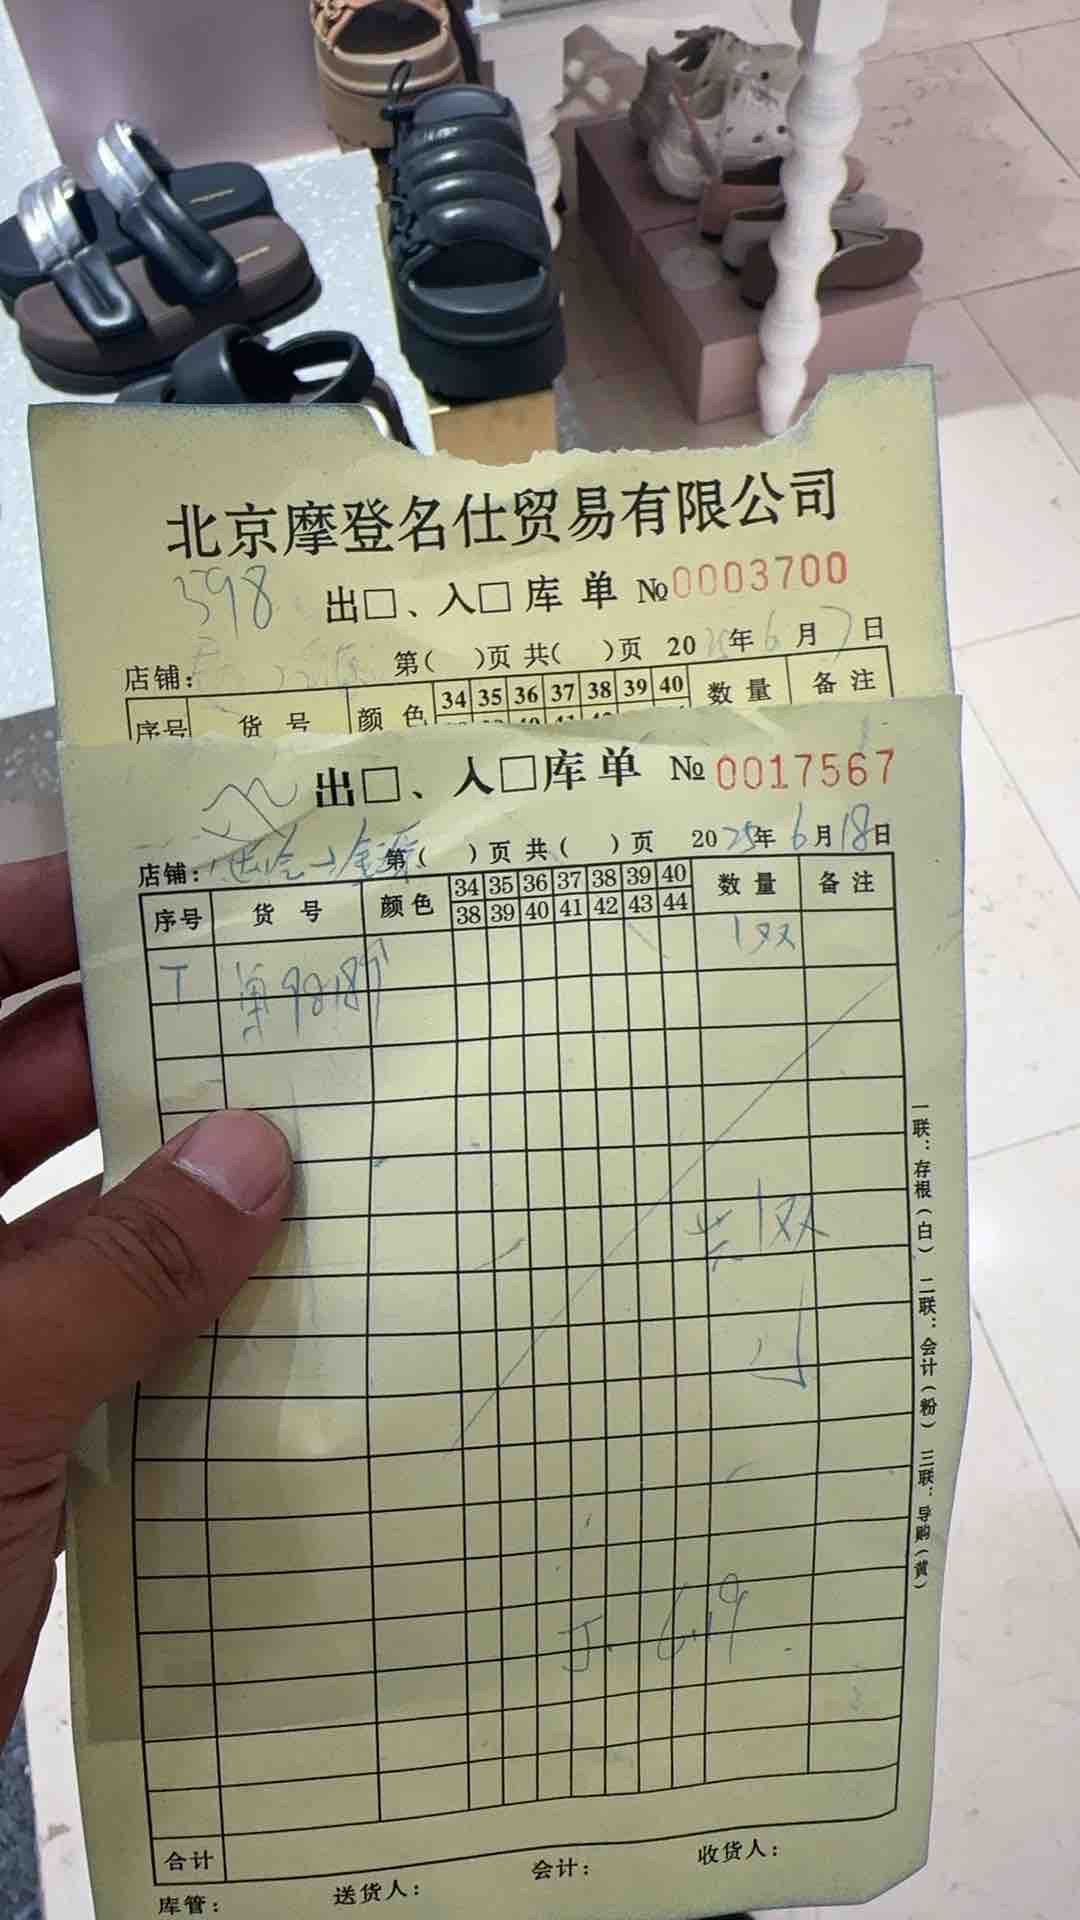 北京摩登名仕贸易有限公司
598
出□、入□库单 №0003700
店铺: 第( )页 共( )页 2025年6月7日
序号 货号 颜色 34 35 36 37 38 39 40 数量 备注
出□、入□库单 №0017567
店铺: 第( )页 共( )页 2025年6月18日
序号 货号 颜色 34 35 36 37 38 39 40 数量 备注
38 39 40 41 42 43 44
1双
共1双
6.19
一联:存根(白) 二联:会计(粉) 三联:导购(黄)
合计
库管: 送货人: 会计: 收货人: